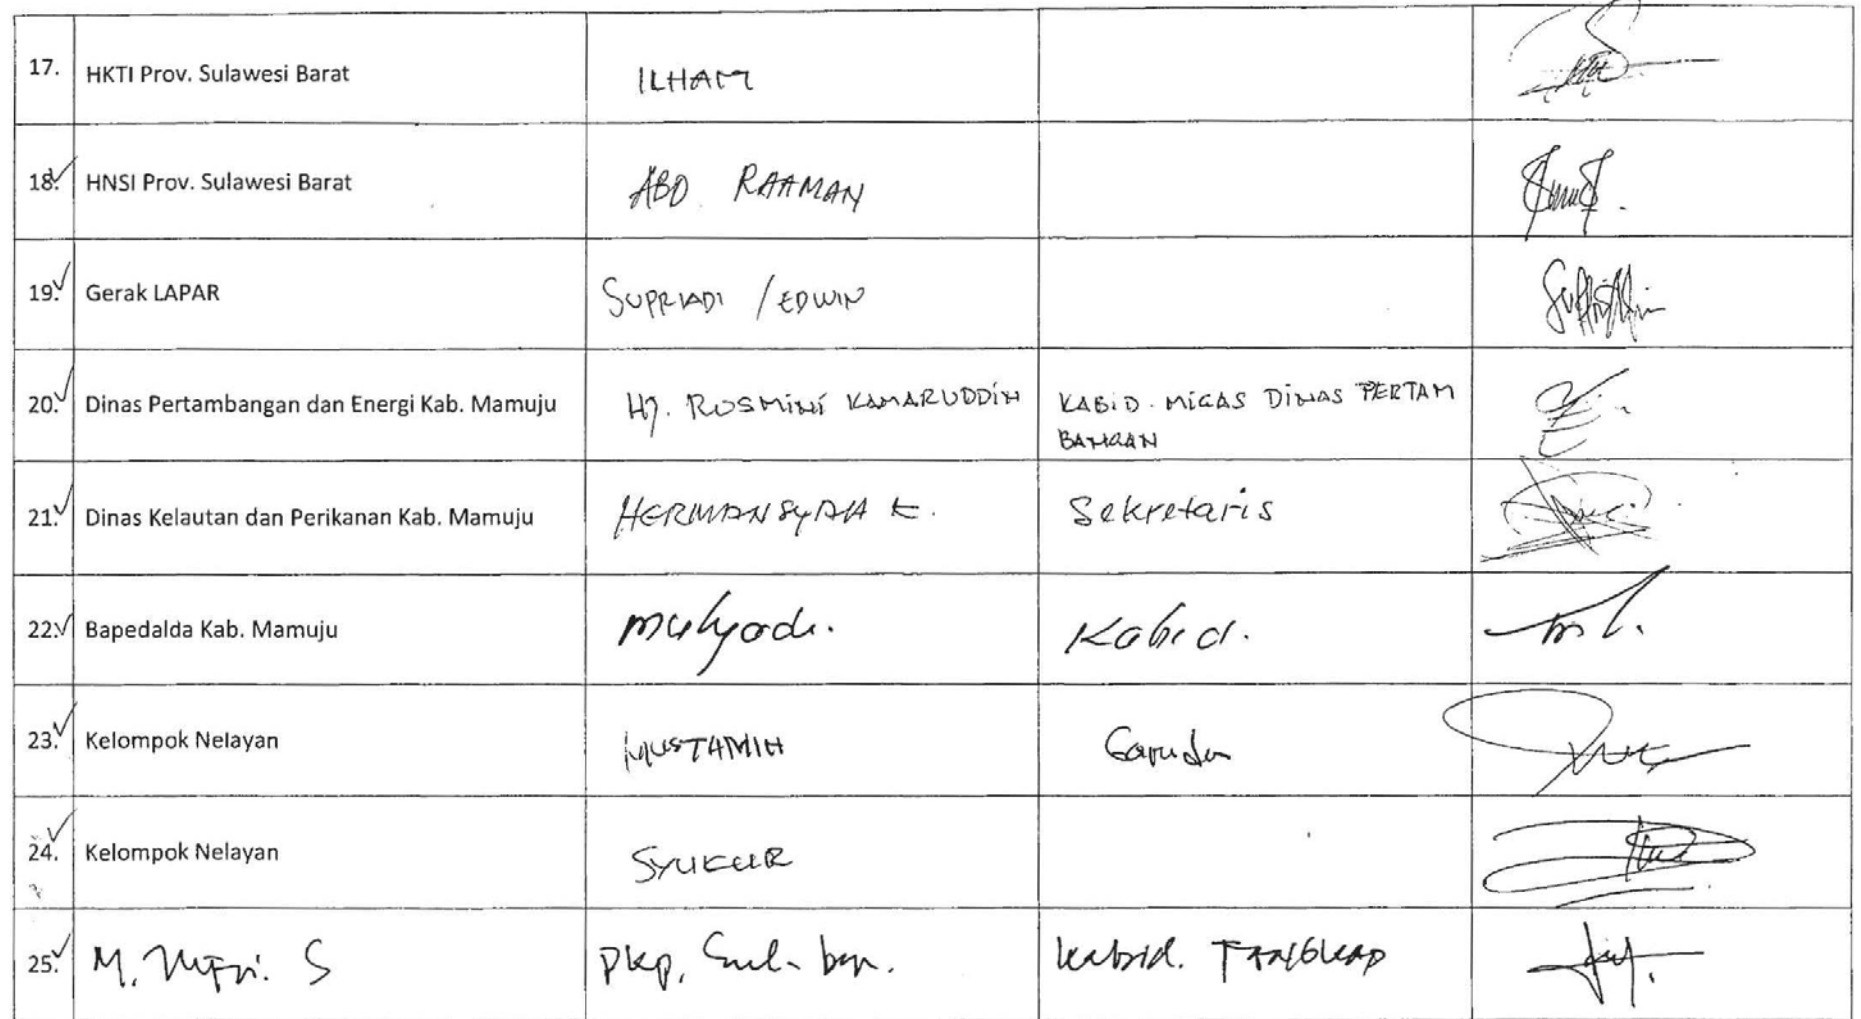 17. HKTI Prov. Sulawesi Barat ILHAM
18. HNSI Prov. Sulawesi Barat ABD. RAHMAN
19. Gerak LAPAR SUPRIADI / EDWIN
20. Dinas Pertambangan dan Energi Kab. Mamuju Hj. ROSMINI KAMARUDDIN KABID. MIGAS DINAS PERTAM
BANGAN
21. Dinas Kelautan dan Perikanan Kab. Mamuju HERMANSYAH K. Sekretaris
22. Bapedalda Kab. Mamuju Mulyadi. Kabid.
23. Kelompok Nelayan MUSTAMIN Garuda
24. Kelompok Nelayan SYUKUR
25. M. S DKP, Sul-bar. Kabid. TANGKAP